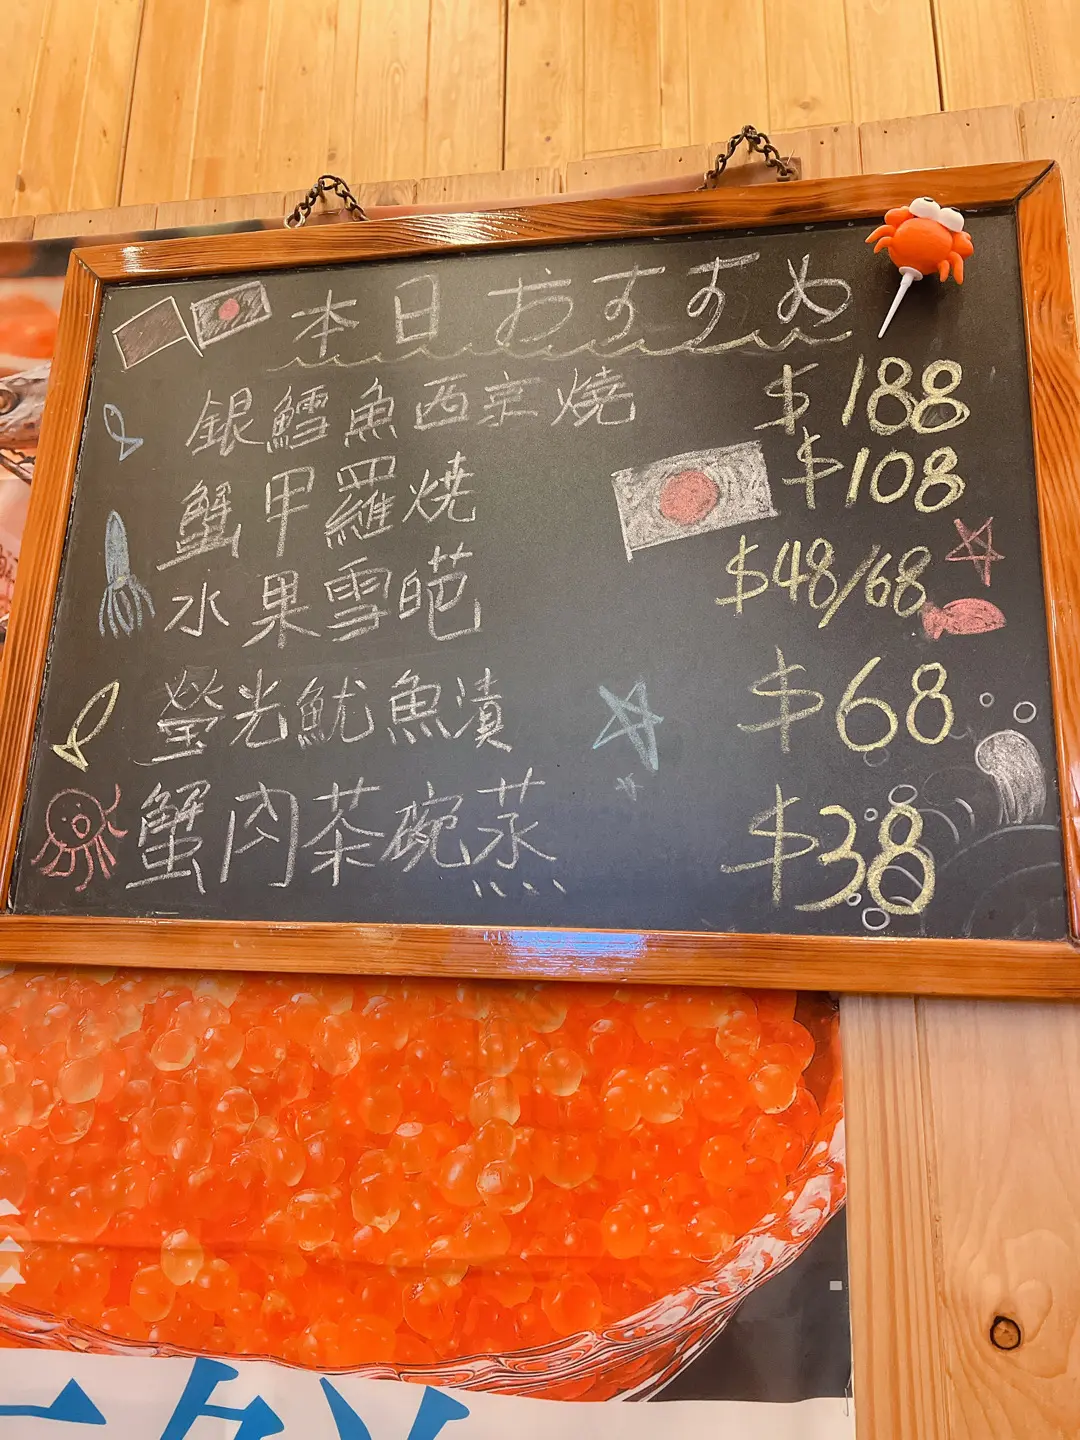 本日おすすめ
銀鱈魚西京燒 $188
蟹甲羅燒 $108
水果雪葩 $48/68
螢光魷魚漬 $68
蟹肉茶碗蒸 $38